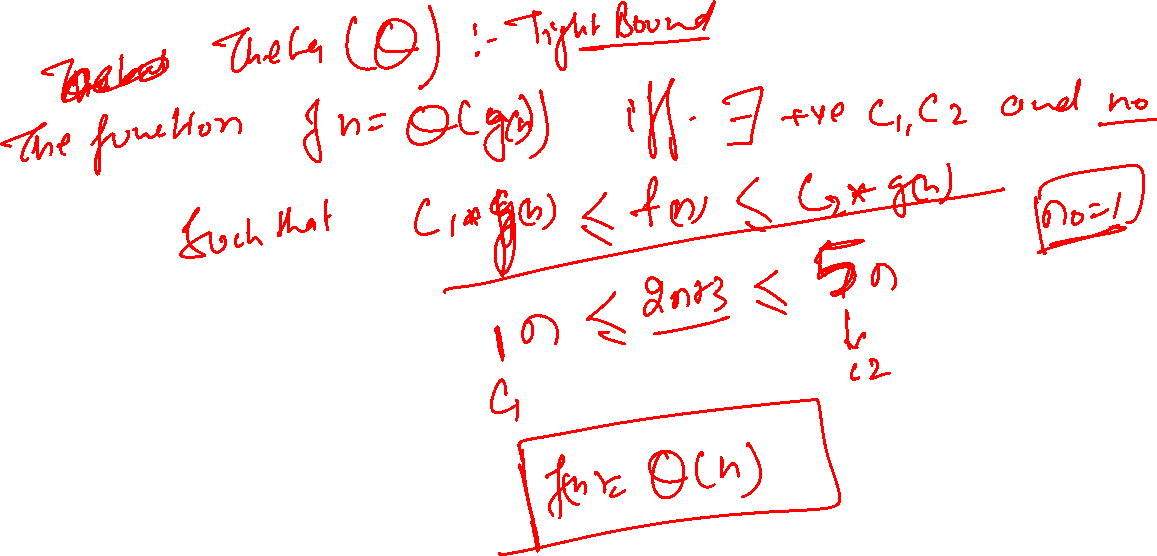 Theta (Θ) :- Tight Bound
The function fn = Θ(g(n)) iff. ∃ +ve C1, C2 and no
Such that C1 * g(n) ≤ f(n) ≤ C2 * g(n)
no=1
1n ≤ 2n+3 ≤ 5n
C1 c2
f(n) = Θ(n)